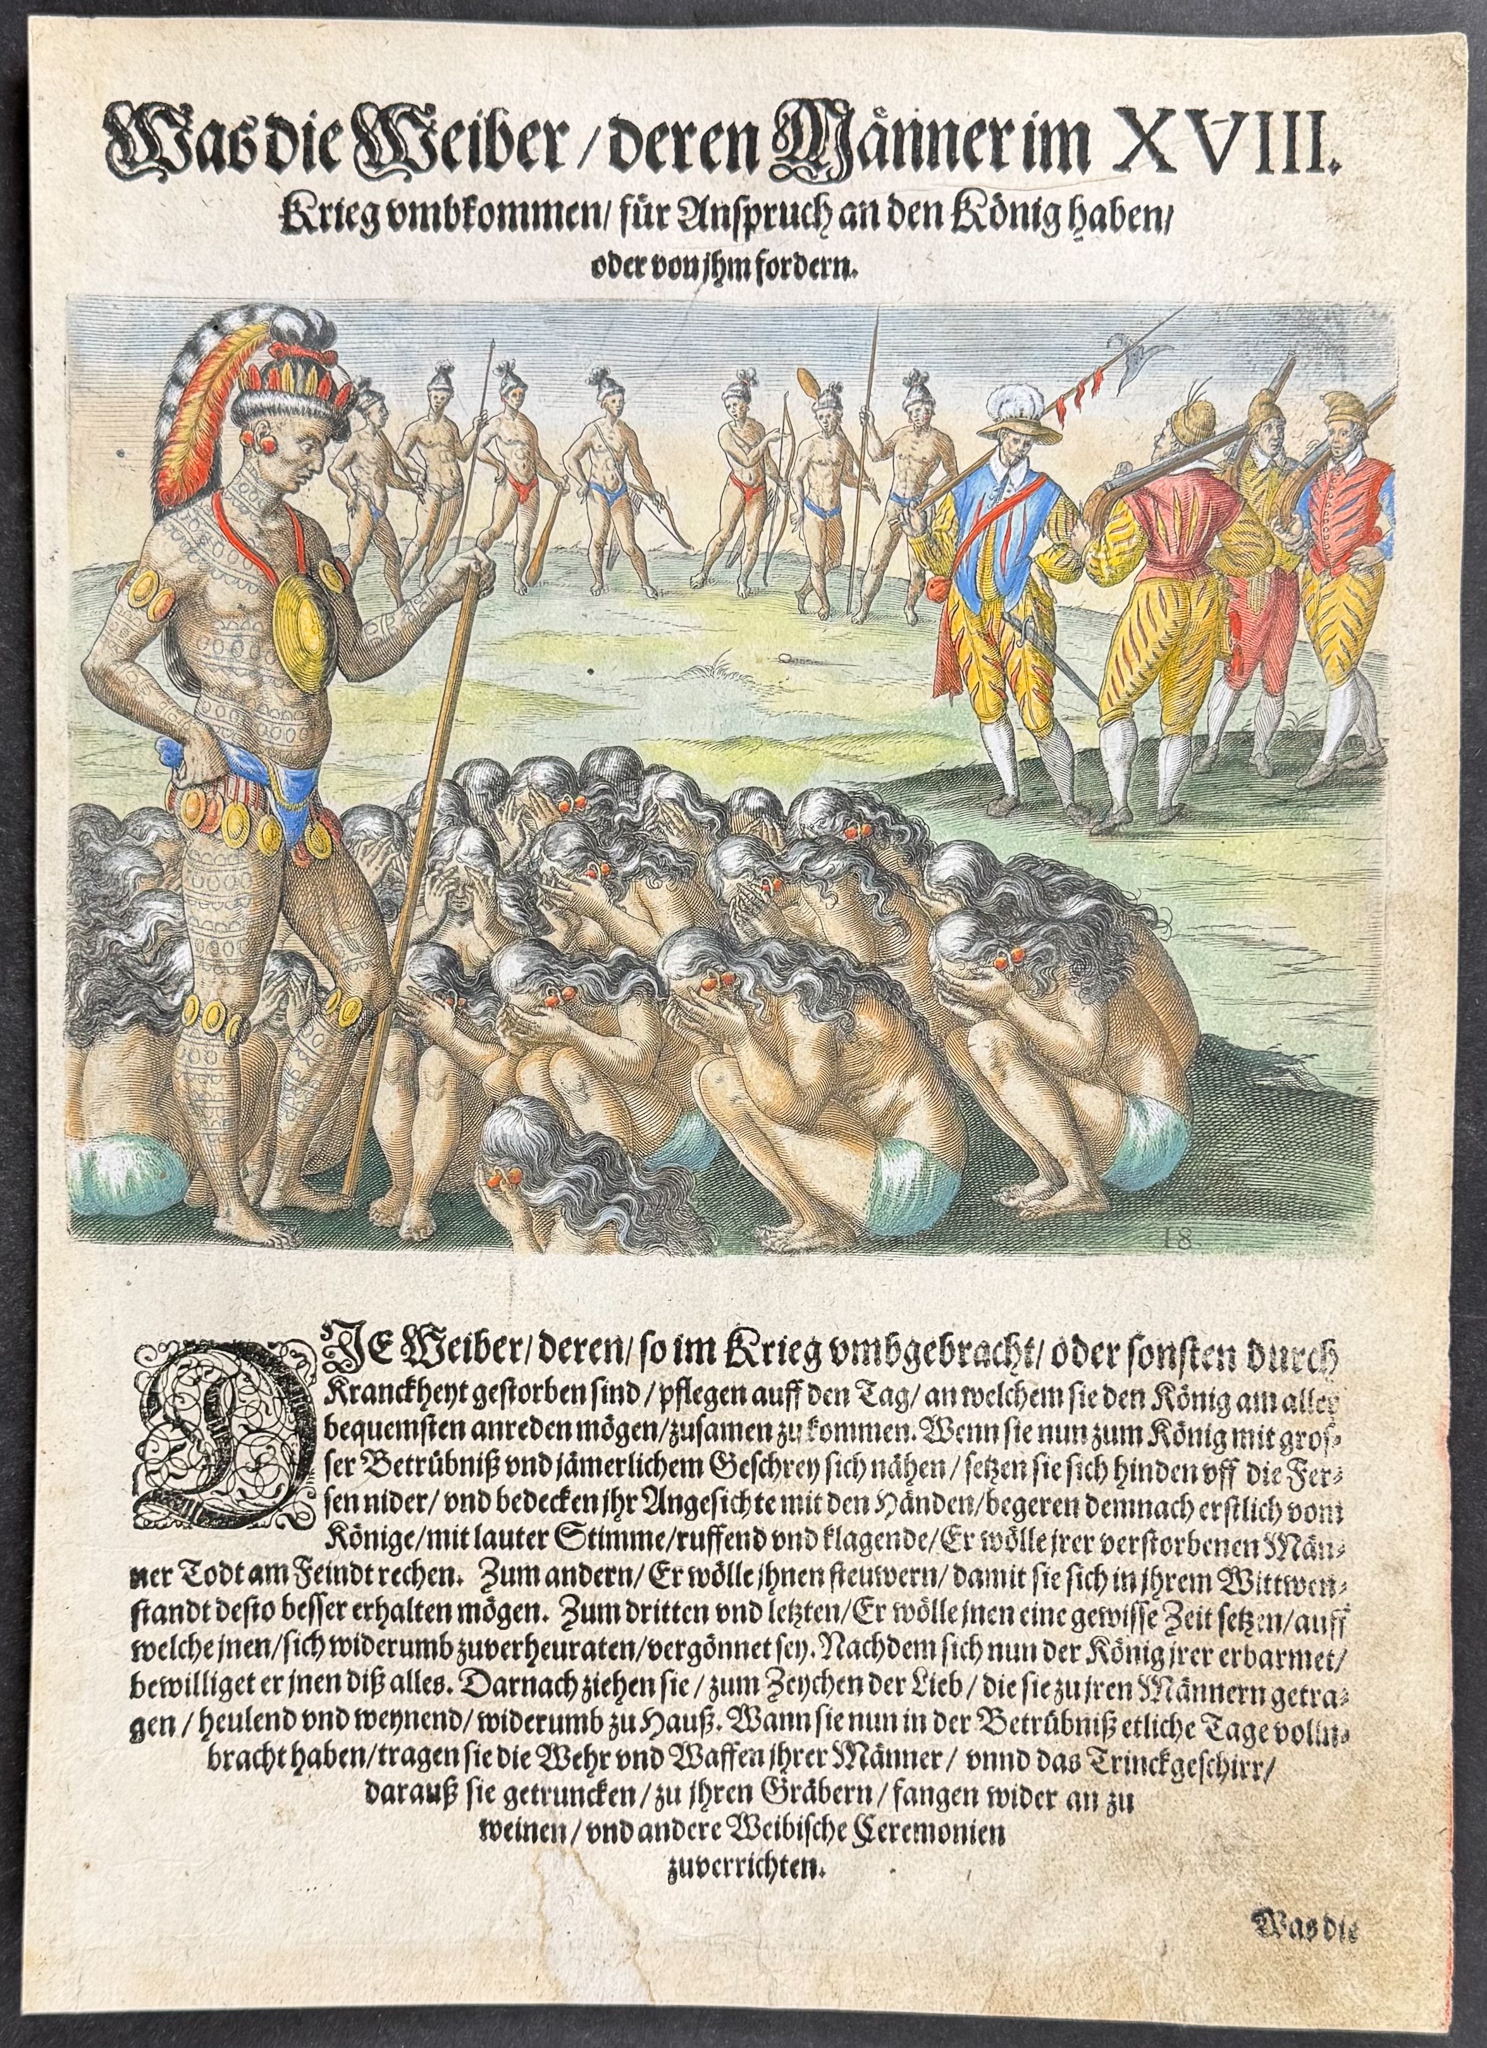 Was die Weiber / deren Männer im XVIII.
Krieg vmbkommen / für Anspruch an den König haben /
oder von jhm fordern.
18.
DIE Weiber / deren / so im Krieg vmbgebracht / oder sonsten durch
Kranckheyt gestorben sind / pflegen auff den Tag / an welchem sie den König am aller
bequemsten anreden mögen / zusamen zu kommen. Wenn sie nun zum König mit gros-
ser Betrübniß vnd jämerlichem Geschrey sich nähen / setzen sie sich hinden vff die Fer-
sen nider / vnd bedecken jhr Angesichte mit den Händen / begeren demnach erstlich vom
Könige / mit lauter Stimme / ruffend vnd klagende / Er wölle jrer verstorbenen Män-
ner Todt am Feindt rechen. Zum andern / Er wölle jhnen steuwern / damit sie sich in jhrem Wittwen-
standt desto besser erhalten mögen. Zum dritten vnd letzten / Er wölle jnen eine gewisse Zeit setzen / auff
welche jnen / sich widerumb zuverheuraten / vergönnet sey. Nachdem sich nun der König jrer erbarmet /
bewilliget er jnen diß alles. Darnach ziehen sie / zum Zeychen der Lieb / die sie zu jren Männern getra-
gen / heulend vnd weynend / widerumb zu Hauß. Wann sie nun in der Betrübniß etliche Tage volln-
bracht haben / tragen sie die Wehr vnd Waffen jhrer Männer / vnnd das Trinckgeschirr /
darauß sie getruncken / zu jhren Gräbern / fangen wider an zu
weinen / vnd andere Weibische Ceremonien
zuverrichten.
Was die